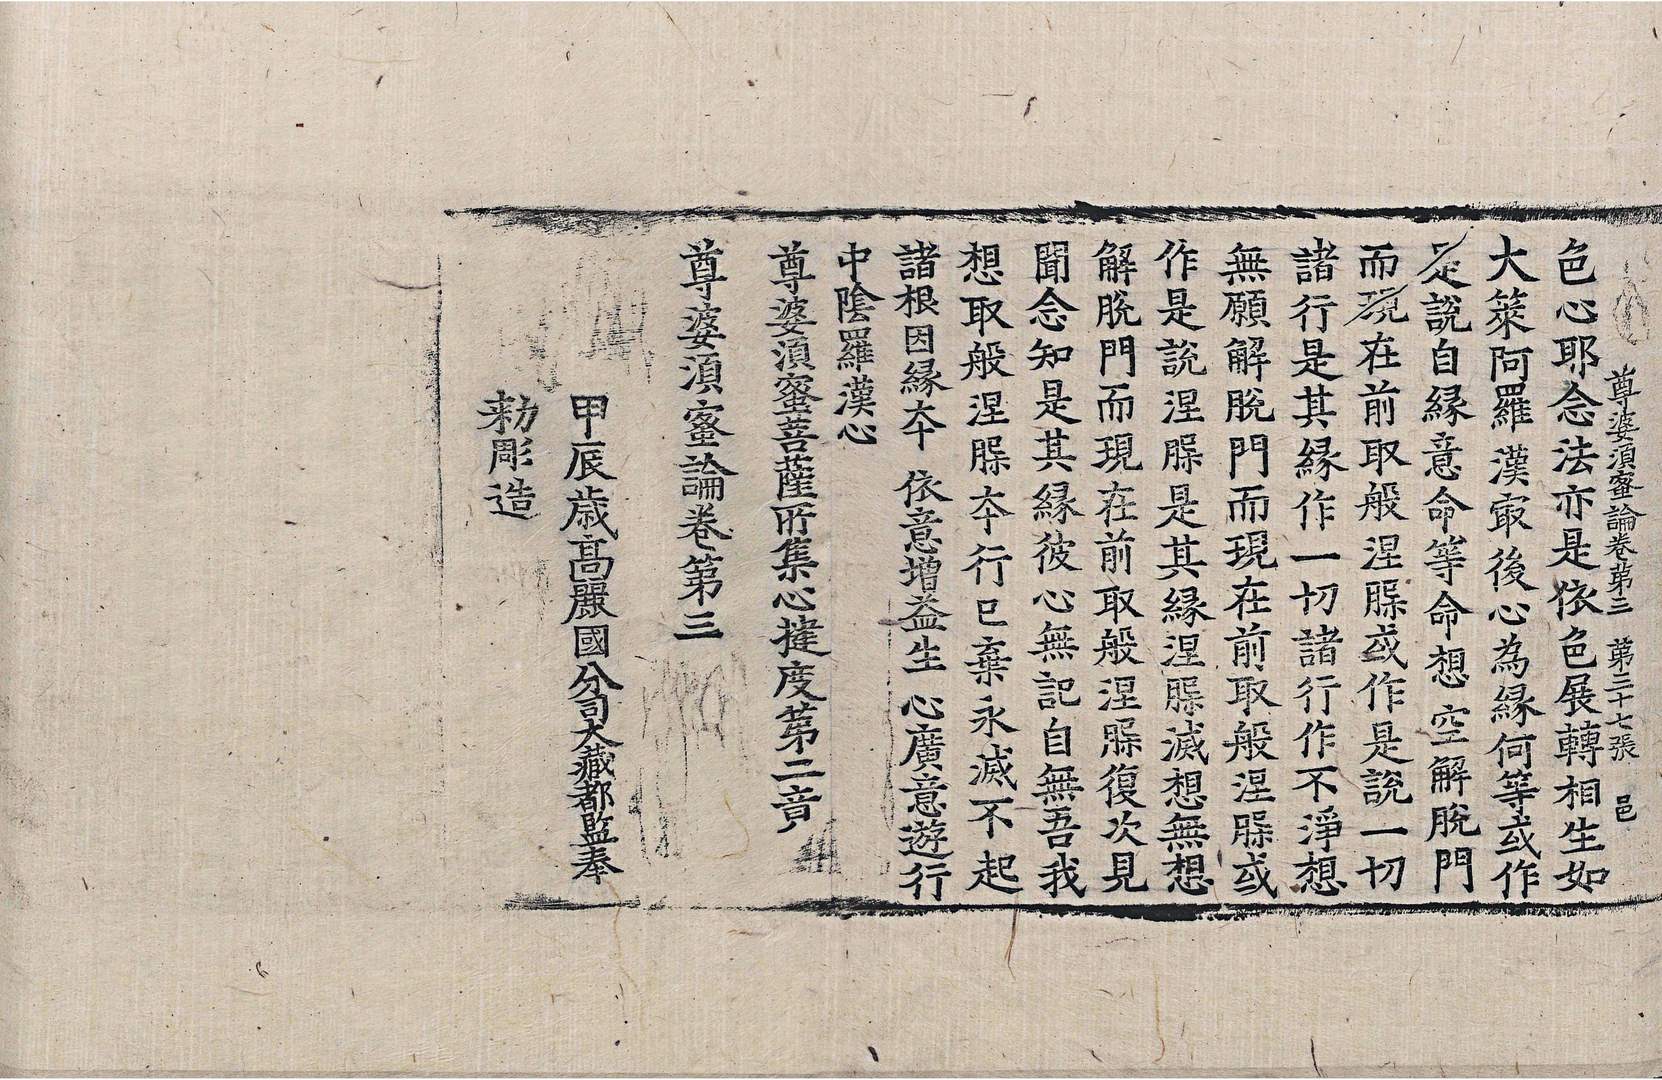 尊婆湏蜜論卷苐三　第三十七張　邑
色心耶念法亦是依色展轉相生如
大策阿羅漢㝡後心為緣何等或作
是說自緣意命等命想空解脫門
而現在前取般涅槃或作是說一切
諸行是其緣作一切諸行作不淨想
無願解脫門而現在前取般涅槃或
作是說涅槃是其緣涅槃滅想無想
解脫門而現在前取般涅槃復次見
聞念知是其緣彼心無記自無吾我
想取般涅槃夲行已棄永滅不起
諸根因緣夲　依意增益生　心廣意遊行
中陰羅漢心
尊婆湏蜜菩薩所集心揵度苐二竟
尊婆湏蜜論卷第三
甲辰歳髙麗國分司大藏都監奉
勑彫造